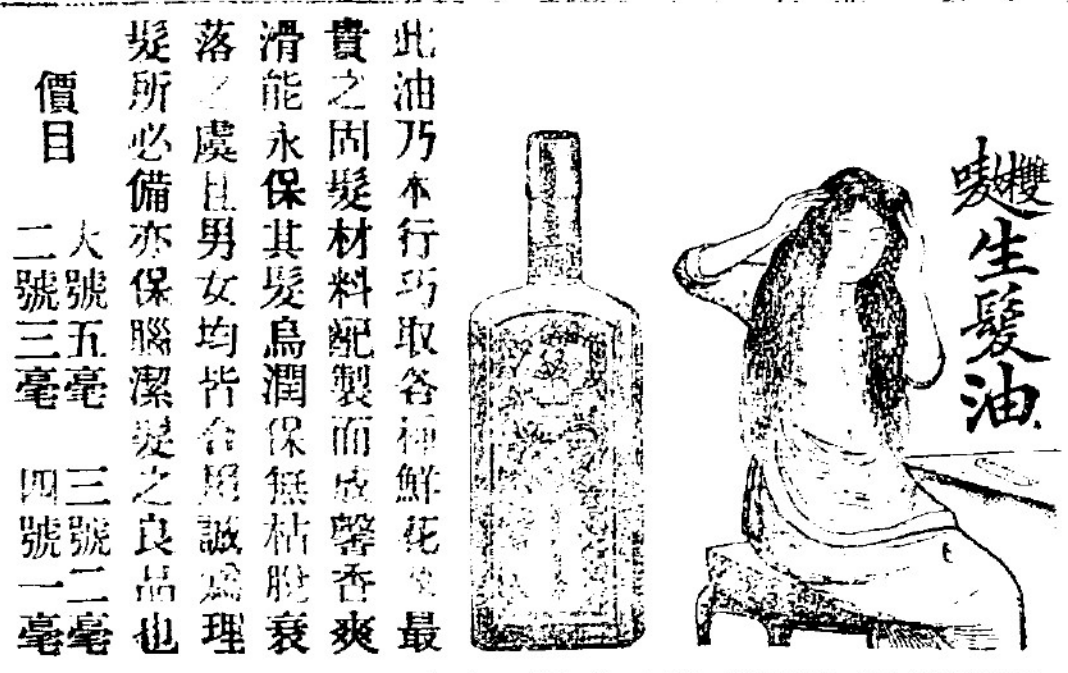 雙妹嘜
生髮油
此油乃本行巧取各種鮮花最
貴之固髮材料配製而成馨香爽
滑能永保其髮烏潤保無枯脫衰
落之虞且男女均皆合用誠爲理
髮所必備亦保腦潔髮之良品也
價目
大號五毫 三號二毫
二號三毫 四號一毫